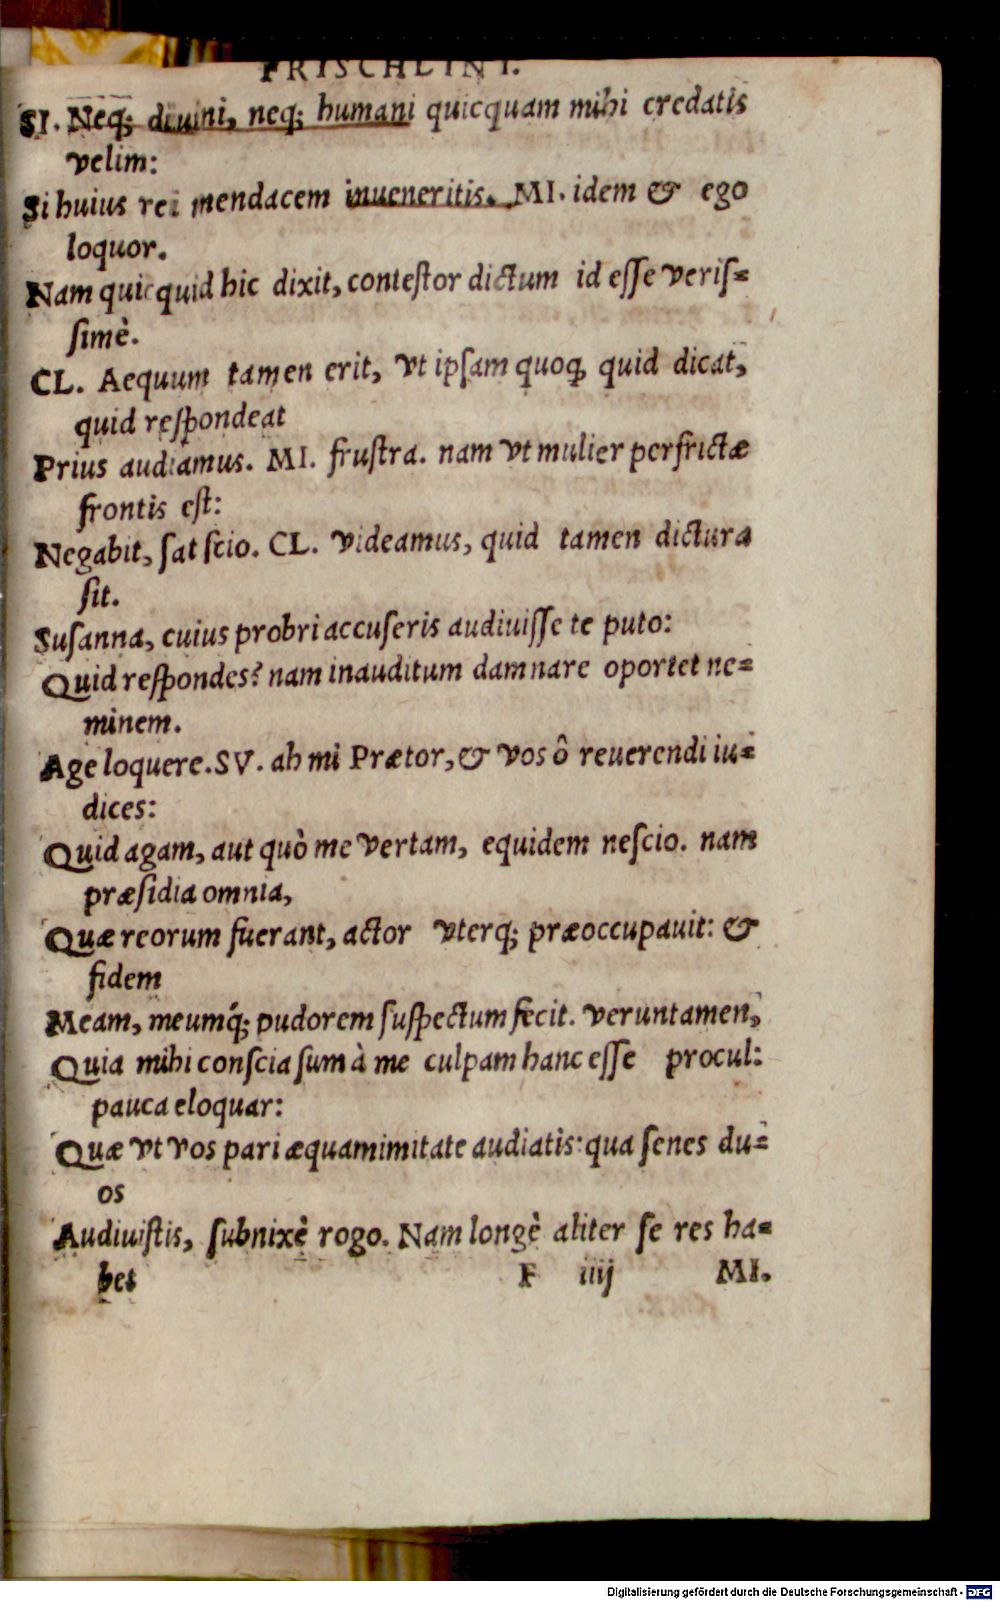 FRISCHLINI.
SI. Neq; diuini, neq; humani quicquam mihi credatis
velim:
Si huius rei mendacem inueneritis. MI. idem & ego
loquor.
Nam quicquid hic dixit, contestor dictum id esse veris=
simè.
CL. Aequum tamen erit, vt ipsam quoq; quid dicat,
quid respondeat
Prius audiamus. MI. frustra. nam vt mulier perfrictæ
frontis est:
Negabit, sat scio. CL. videamus, quid tamen dictura
sit.
Susanna, cuius probri accuseris audiuisse te puto:
Quid respondes? nam inauditum damnare oportet ne=
minem.
Age loquere. SV. ah mi Prætor, & vos ô reuerendi iu=
dices:
Quid agam, aut quò me vertam, equidem nescio. nam
præsidia omnia,
Quæ reorum fuerant, actor vterq; præoccupauit: &
fidem
Meam, meumq́; pudorem suspectum fecit. veruntamen,
Quia mihi conscia sum à me culpam hanc esse procul:
pauca eloquar:
Quæ vt vos pari æquamimitate audiatis: qua senes du=
os
Audiuistis, subnixè rogo. Nam longè aliter se res ha=
bet F iiij MI.
Digitalisierung gefördert durch die Deutsche Forschungsgemeinschaft - DFG